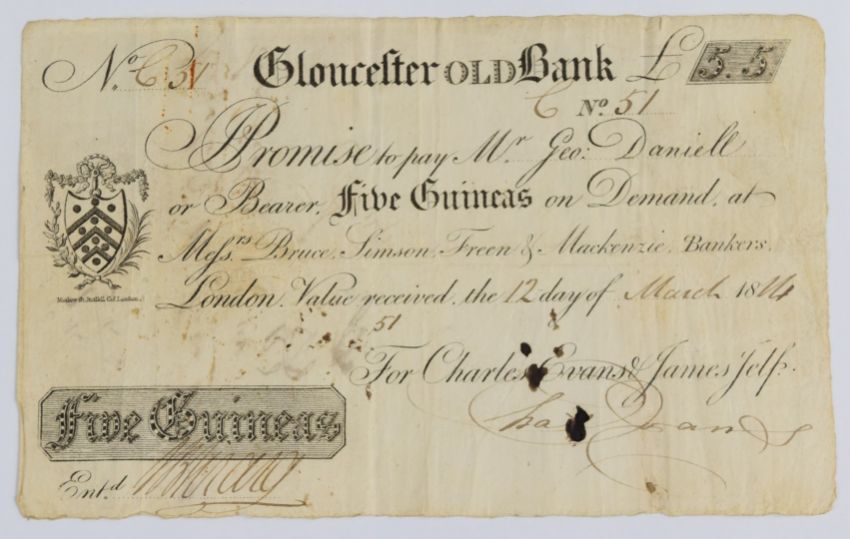 No. C 51 Gloucester OLD Bank £ 5.5
C No. 51
I Promise to pay Mr. Geo: Daniell
or Bearer, Five Guineas on Demand, at
Messrs. Bruce, Simson, Freen & Mackenzie, Bankers,
London. Value received, the 12 day of March 1814
51
For Charles Evans & James Jelf.
Chas Evans
Five Guineas
Entd.